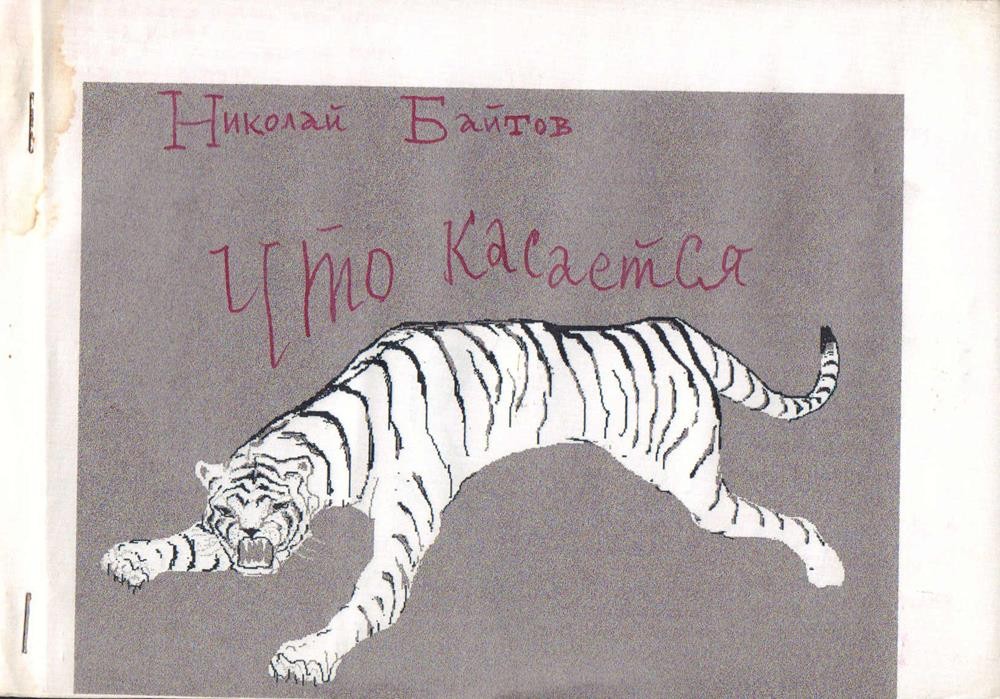 Николай Байтов
Что касается